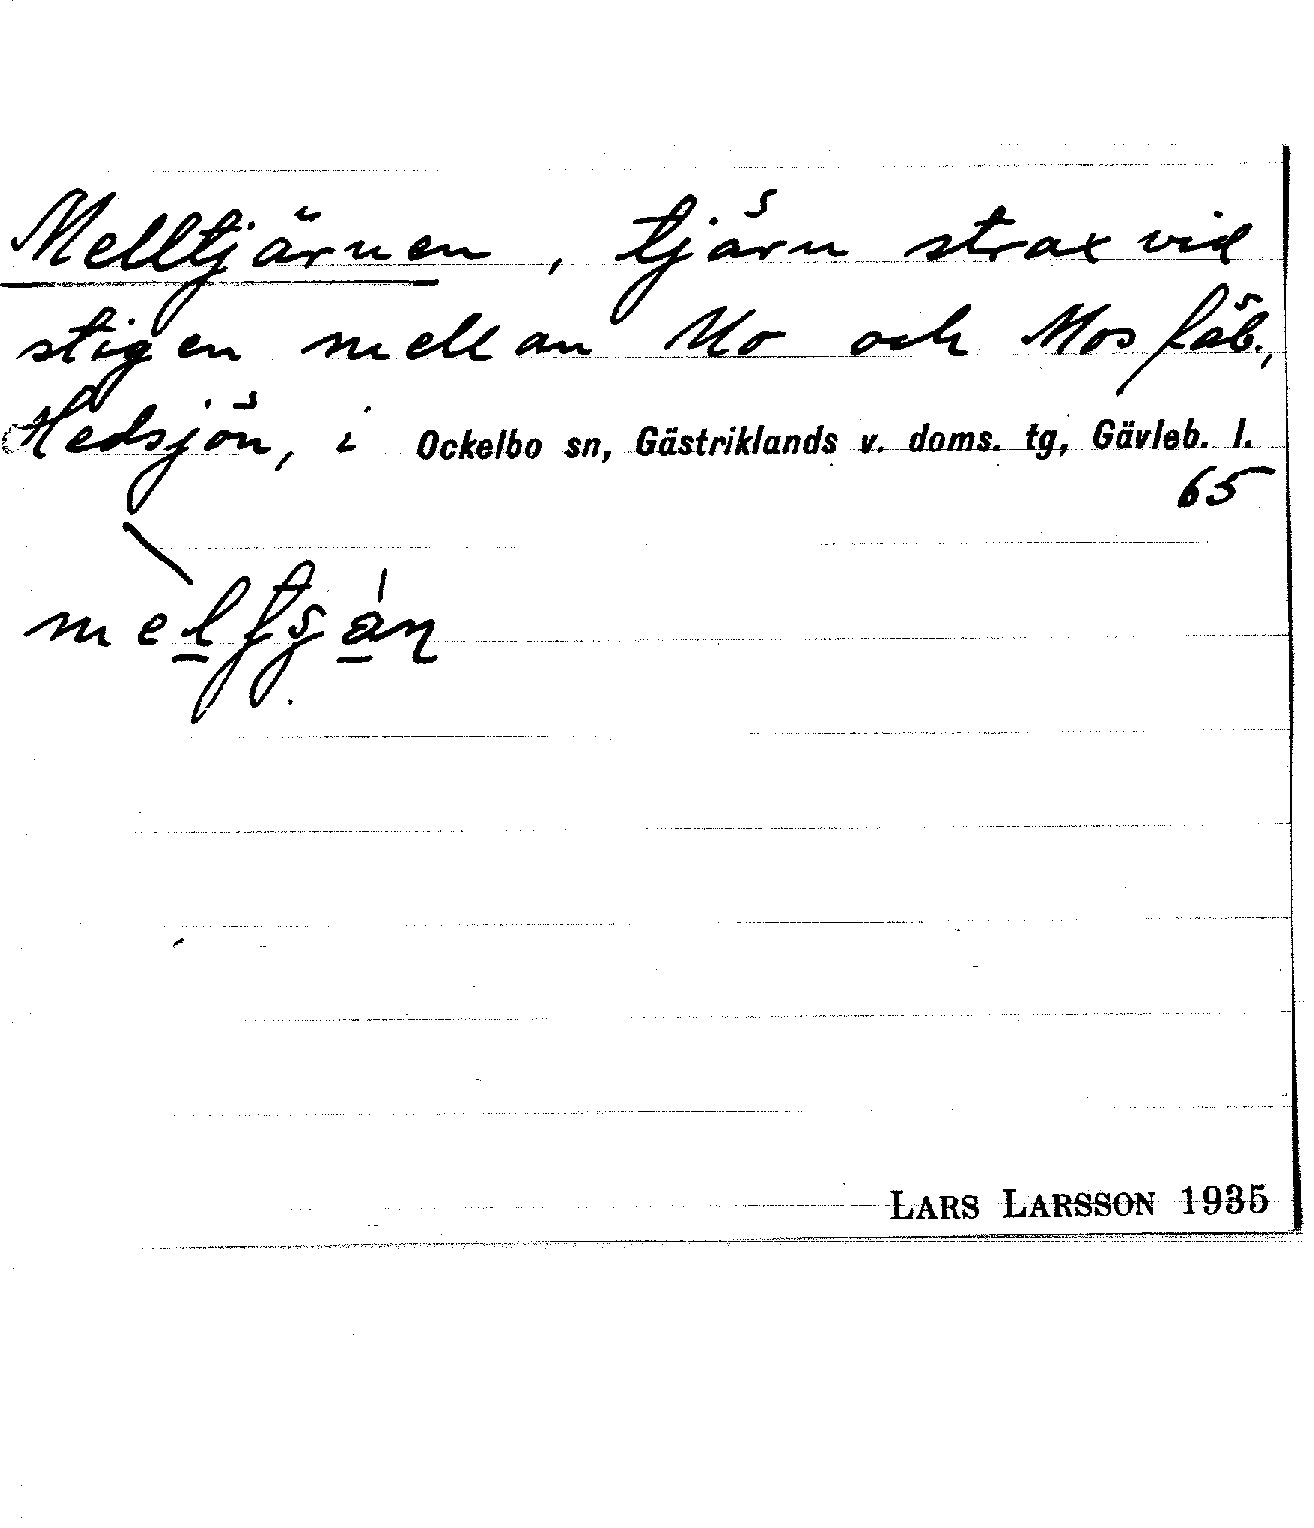 Melltjärnen, tjärn strax vid
stigen mellan Mo och Mos fäb.,
Hedsjön, i Ockelbo sn, Gästriklands v. doms. tg, Gävleb. l.
65
LARS LARSSON 1935